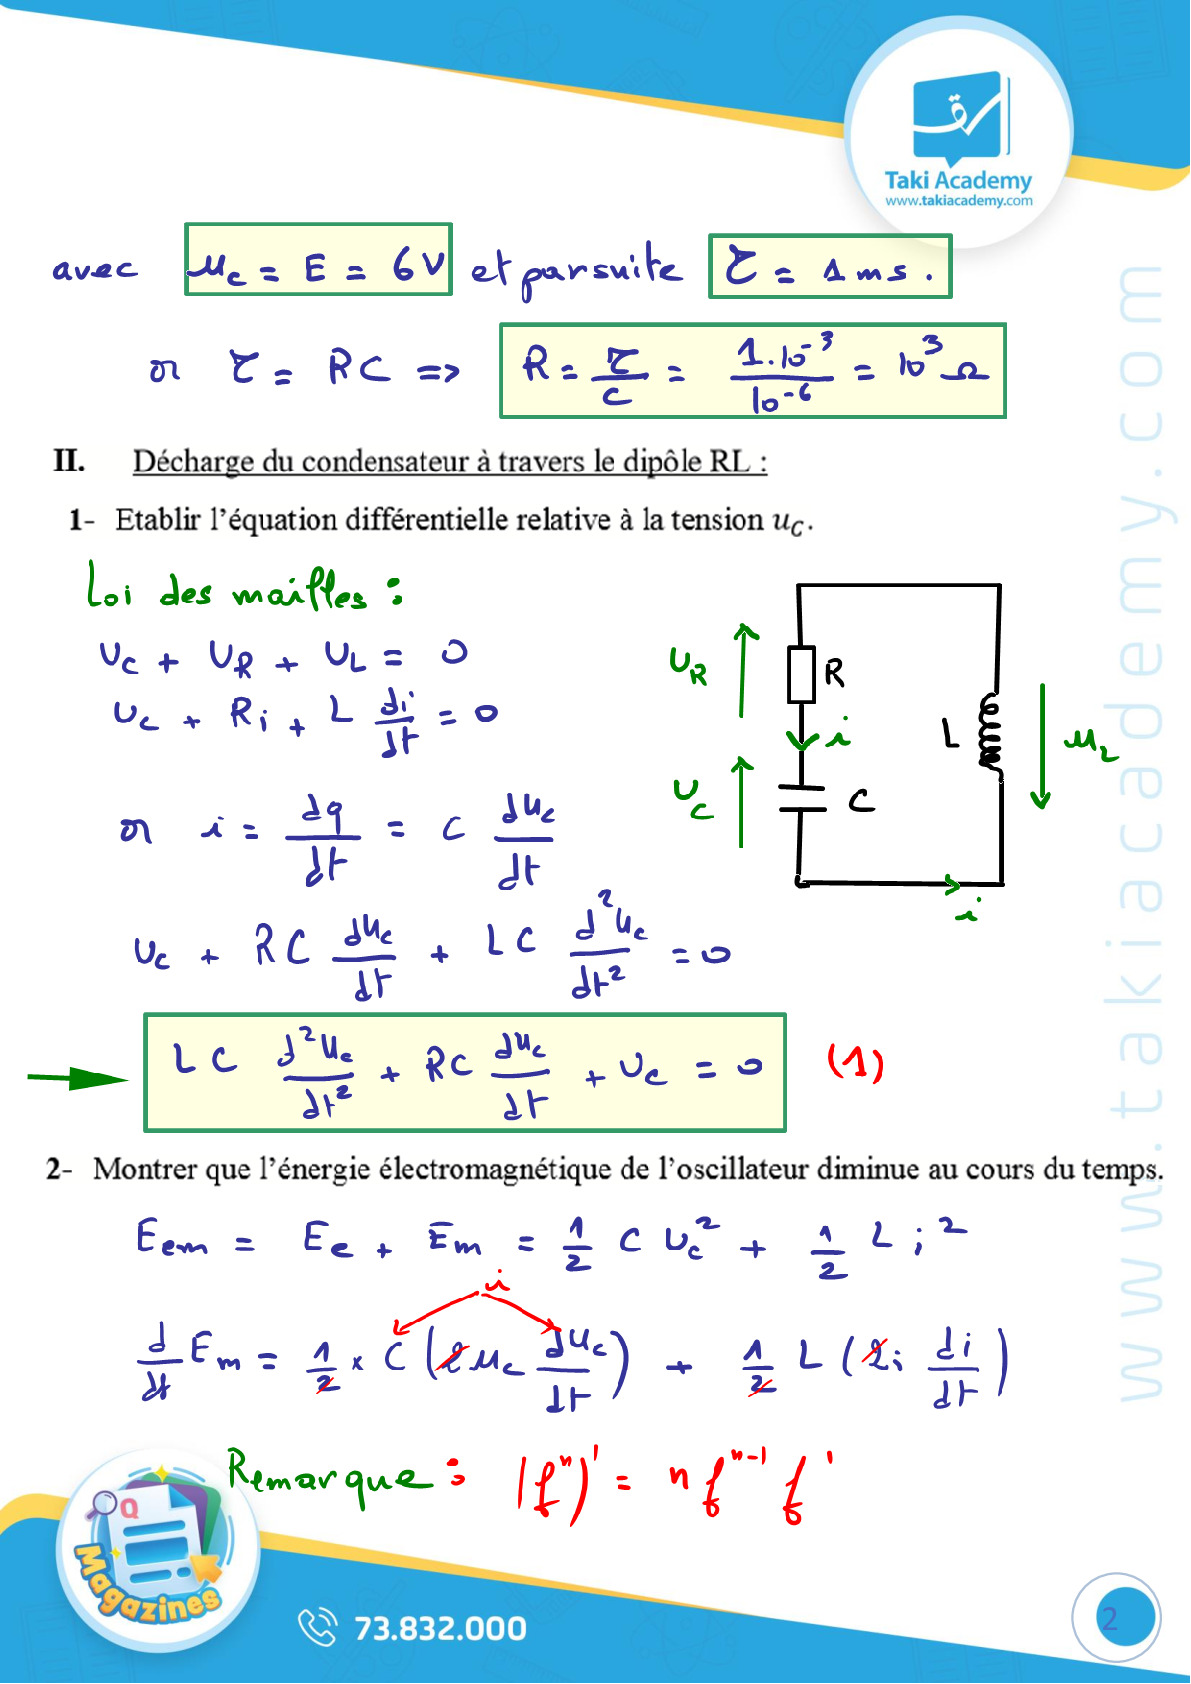 Taki Academy
www.takiacademy.com
avec u_c = E = 6V et par suite τ = 1 ms.
or τ = RC => R = τ/C = 1.10^-3/10^-6 = 10^3 Ω
II. Décharge du condensateur à travers le dipôle RL :
1- Etablir l'équation différentielle relative à la tension u_C.
Loi des mailles :
u_C + u_R + u_L = 0
u_C + Ri + L di/dt = 0
or i = dq/dt = C du_C/dt
u_C + RC du_C/dt + LC d²u_C/dt² = 0
LC d²u_C/dt² + RC du_C/dt + u_C = 0 (1)
u_R
R
i
L
u_L
u_C
C
i
2- Montrer que l'énergie électromagnétique de l'oscillateur diminue au cours du temps.
E_em = E_e + E_m = 1/2 C u_C² + 1/2 L i²
i
d/dt E_m = 1/2 × C (2 u_C du_C/dt) + 1/2 L (2i di/dt)
Remarque : (f^n)' = n f^(n-1) f'
www.takiacademy.com
Q
Magazines
73.832.000
2